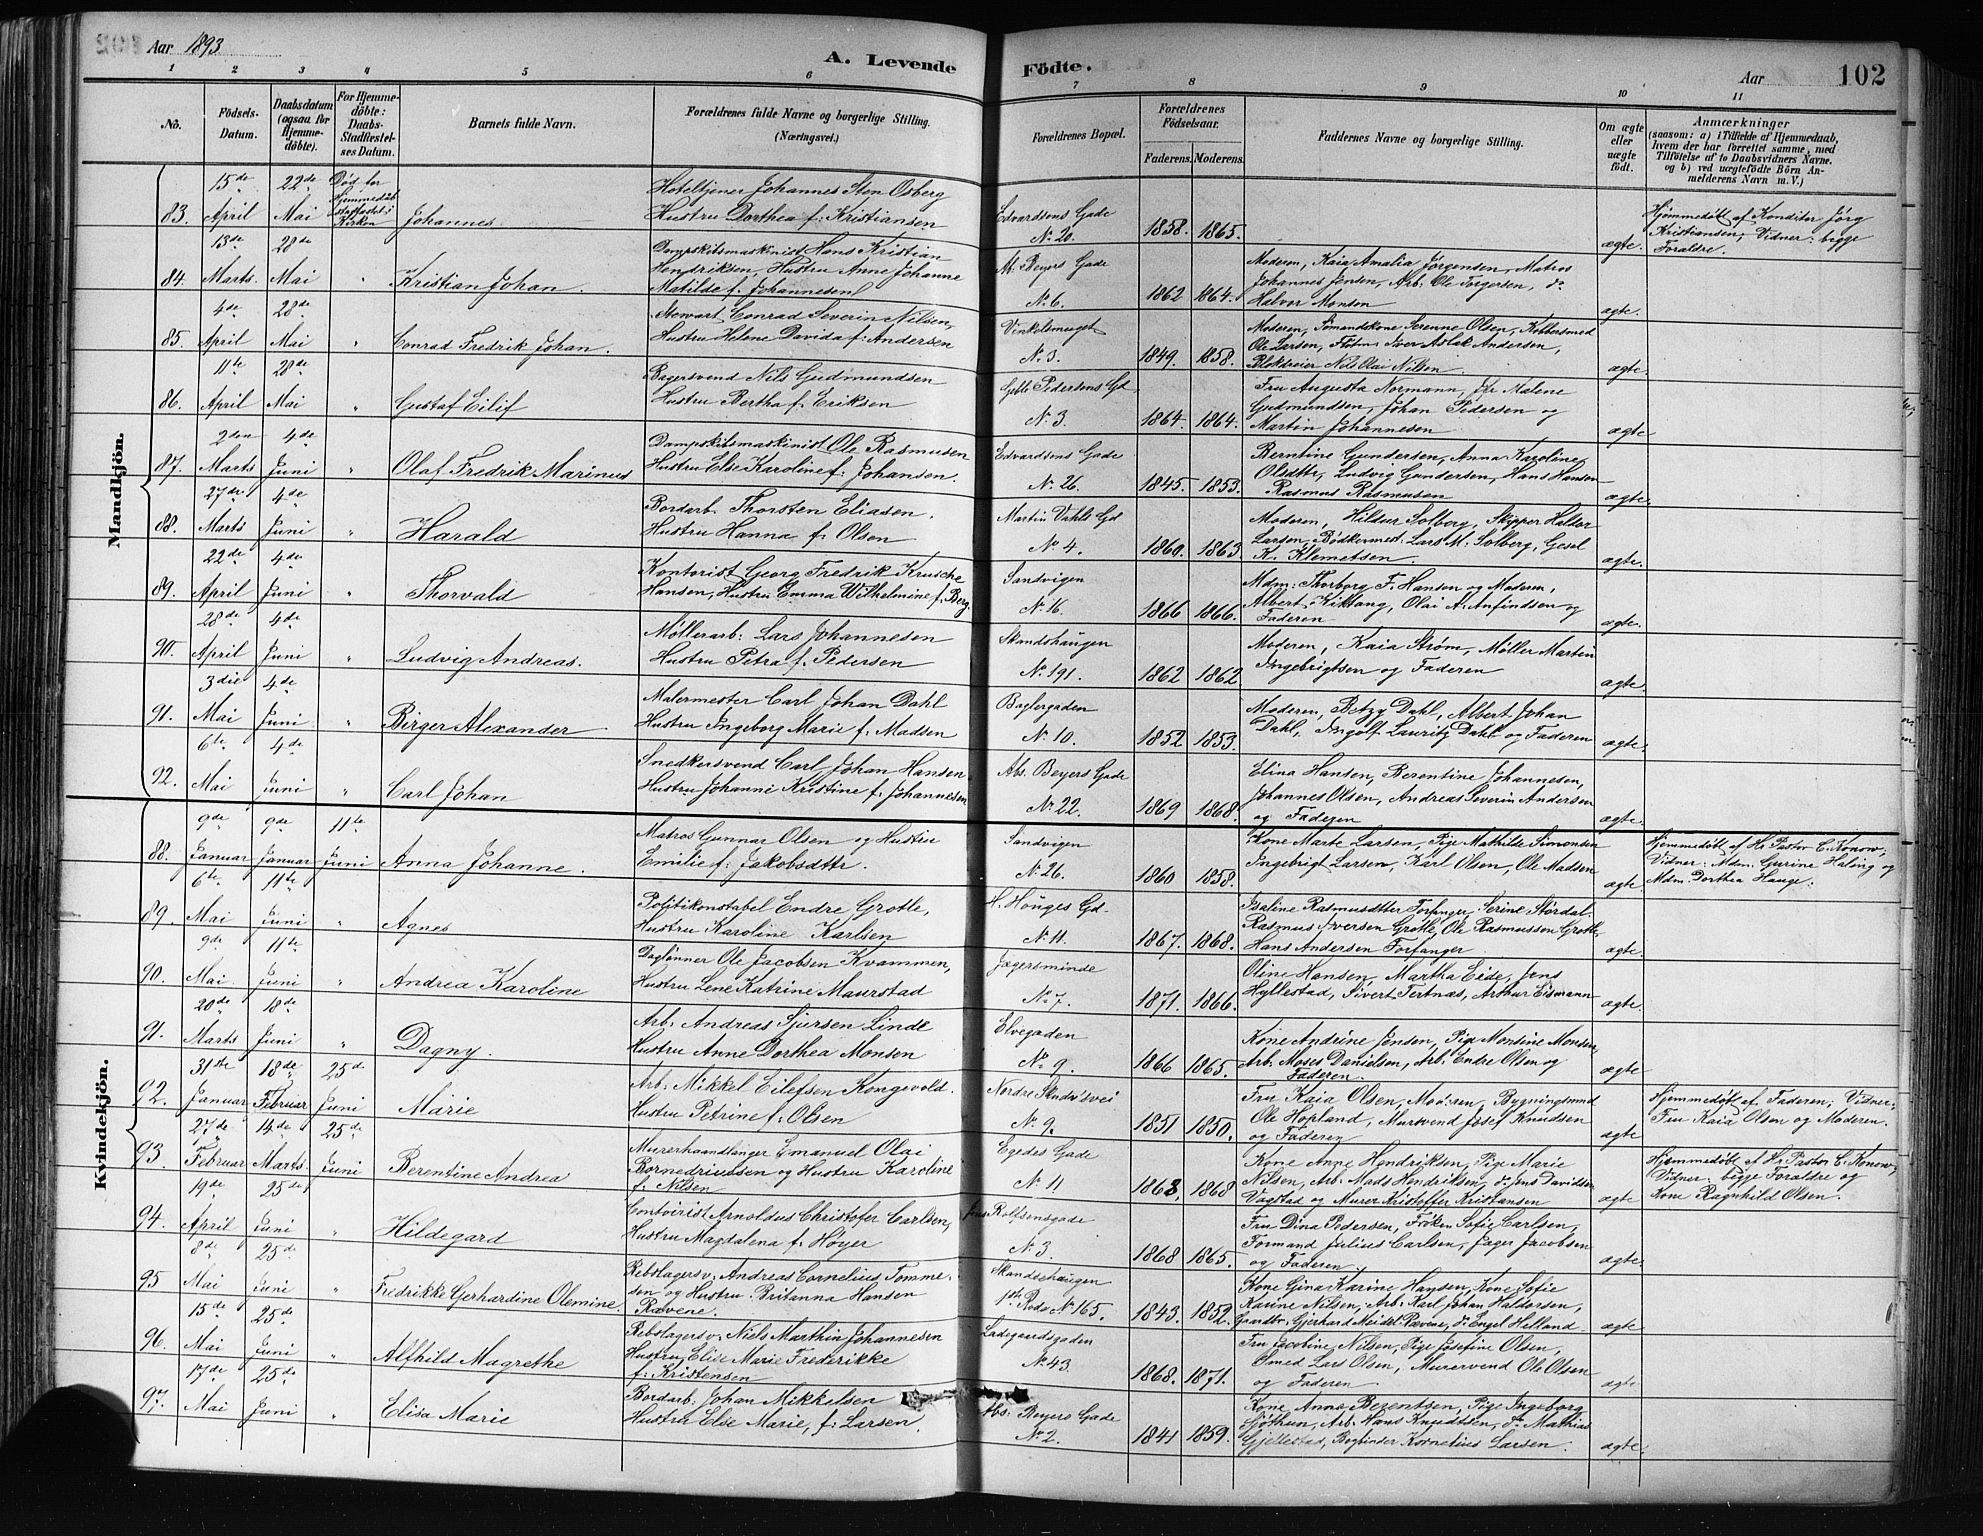 Aar 1893
A. Levende Födte.
Aar 102
1 2 3 4 5 6 7 8 9 10 11
No.
Födsels-Datum.
Daabsdatum (ogsaa for Hjemme-döbte).
For Hjemme-döbte: Daabs-Stadfæstel-ses Datum.
Barnets fulde Navn.
Forældrenes fulde Navne og borgerlige Stilling. (Næringsvei.)
Forældrenes Bopæl.
Forældrenes Födselsaar.
Faderens. Moderens.
Faddernes Navne og borgerlige Stilling.
Om ægte eller uægte födt.
Anmærkninger
(saasom: a) i Tilfælde af Hjemmedaab, hvem der har forrettet samme, med Tilföielse af to Daabsvidners Navne. og b) ved uægtefödte Börn Anmelderens Navn m. V.)
Mandkjön.
83. 15de April 22de Mai Død før Hjemmedåb stadfæstet i Kirken Johannes
Hoteltjener Johannes Sten Osberg
Hustru Dorthea f: Kristiansen
Edvardsens Gade No. 20. 1858. 1865. ægte.
Hjemmedøbt af Konditor Jörg
Kristiansen, Vidner: begge
Forældre.
84. 13de Marts. 28de Mai " Kristian Johan.
Dampskibsmaskinist Hans Kristian
Hendriksen, Hustru Anne Johanne
Matilde f. Johannesen
M. Beyers Gade No. 6. 1862 1864.
Moderen, Kaia Amalia Jörgensen, Matros
Johannes Jensen, Arb. Ole Torgersen, do
Halvor Monsen ægte.
85. 4de April 28de Mai " Conrad Fredrik Johan.
Stewart Conrad Severin Nilsen,
Hustru Helene Davida f: Andersen
Vinkelsmuget No. 3. 1849. 1858.
Moderen, Sömandskone Serenne Olsen, Kobbersmed
Ole Larsen, Iver Aslak Andersen,
Blokdreier Nils Olai Nilsen ægte
86. 11te April 28de Mai " Gustaf Eilif
Bagersvend Nils Gudmundsen
Hustru Bertha f. Eriksen
Geble Pedersens Gd No. 3 1864. 1864.
Fru Augusta Normann, Malene
Gudmundsen, Johan Pedersen og
Martin Johannesen ægte
87. 2den Marts 4de Juni " Olaf Fredrik Marinus
Dampskibsmaskinist Ole Rasmusen
Hustru Elise Karoline f: Johansen.
Edvardsens Gade No. 26. 1845. 1853.
Berntine Gundersen, Anna Karoline
Olsdtte, Ludvig Gundersen, Hans Hansen
Rasmus Rasmusen ægte.
88. 27de Marts 4de Juni " Harald
Bordarb. Thorsten Eliasen.
Hustru Hanna f. Olsen
Martin Vahls Gd No. 4. 1860. 1863
Moderen, Hildur Solberg, Skipper Haldor
Larsen, Bödkermest. Lars M. Solberg, Gesel
K. Klemetsen. ægte.
89. 22de April 4de Juni " Thorvald
Kontorist Georg Fredrik Krusche
Hansen, Hustru Emma Wilhelmine f. Berg.
Sandvigen No. 16. 1866 1866.
Mdm: Thorborg F. Hansen og Moderen,
Albert Kittang, Olai A. Anfindsen og
Faderen ægte.
90. 28de April 4de Juni " Ludvig Andreas.
Møllerarb. Lars Johannesen
Hustru Petra f. Pedersen
Skandshaugen No. 191. 1862 1862
Moderen, Kaia Strøm, Møller Martin
Ingebrigtsen og Faderen ægte.
91. 3die Mai 4de Juni " Birger Alexander
Malermester Carl Johan Dahl
Hustru Ingeborg Marie f. Madsen
Baglergaden No. 10. 1852 1853.
Moderen, Betzy Dahl, Albert Johan
Dahl, Ingolf Lauritz Dahl og Faderen ægte.
92. 6te Mai 4de Juni " Carl Johan
Snedkersvend Carl Johan Hansen
Hustru Johanni Kristine f. Johannesen
Abs. Beyers Gade No. 22. 1869 1868.
Elina Hansen, Berentine Johannesen,
Johannes Olsen, Andreas Severin Andersen
og Faderen ægte.
Kvindekjön.
88. 9de Januar 9de Januar 11te Juni Anna Johanne.
Matros Gunnar Olsen og Hustru
Emilie f. Jakobsdttr.
Sandvigen No. 26. 1860 1858.
Kone Marte Larsen, Pige Mathilde Simonsen
Ingebrigt Larsen, Karl Olsen, Ole Madsen ægte
Hjemmedøbt af Hr. Pastor C. Konow,
Vidner: Mdm. Gurine Haling og
Mdm. Dorthea Hauge.
89. 6te Mai 11te Juni " Agnes
Politikonstabel Endre Grotle,
Hustru Karoline Karlsen
H. Hauges Gd. No. 11. 1867. 1868.
Isaline Rasmusdtter Forfanger, Serine Stördal
Rasmus Iversen Grotle, Ole Rasmussen Grotle,
Hans Andersen Forfanger ægte.
90. 9de Mai 11te Juni " Andrea Karoline
Daglønner Ole Jacobsen Kvammen,
Hustru Lene Katrine Maurstad
Jægersminde No. 7. 1871. 1866.
Oline Hansen, Martha Eide, Jens
Hyllestad, Sivert Tertnæs, Arthur Eismann ægte.
91. 20de Marts 18de Juni " Dagny.
Arb. Andreas Sjursen Linde
Hustru Anne Dorthea Monsen
Elvegaden No. 9. 1866 1865.
Kone Andrine Jensen, Pige Montine Monsen,
Arb. Moses Danielsen, Arb. Endre Olsen og
Faderen. ægte
92. 31te Januar 18de Februar 25de Juni Marie
Arb. Mikkel Eilefsen Kongevold.
Hustru Petrine f. Olsen
Nordre Skudevsvei No. 9. 1851 1850.
Fru Kaia Olsen, Moderen, Bygningssnd
Ole Hopland, Mursvend Josef Knudsen
og Faderen ægte
Hjemmedøbt af Faderen; Vidner:
Fru Kaia Olsen og Moderen.
93. 27de Februar 14de Marts 25de Juni Berentine Andrea
Murerhaandlanger Emanuel Olai
Bornedriussen og Hustru Karoline
f. Nilsen
Egedes Gade No. 11 1863. 1868
Kone Anne Hendriksen, Pige Marie
Nilsen, Arb. Mads Hendriksen, do Jens Davidsen
Vagstad og Murer Kristoffer Kristiansen ægte
Hjemmedøbt af Hr. Pastor C. Konow,
Vidner: begge Forældre og
Kone Ragnhild Olsen.
94. 19de April 25de Juni " Hildegard
Contorist Arnoldus Christofer Carlsen,
Hustru Magdalena f. Høyer
Jens Rolfsensgade No. 3. 1868 1865.
Fru Dina Pedersen, Frøken Sofie Carlsen,
Formand Julius Carlsen, Jager Jacobsen
og Faderen ægte.
95 8de Mai 25de Juni " Fredrikke Gerhardine Olemine.
Rebslagersv. Andreas Cornelius Tomme-
sen og Hustru Britanna Hansen
Rævene.
Skandsehaugen 1ste Rode No 165. 1843. 1852.
Kone Gina Karine Hansen, Kone Sofie
Karine Nilsen, Arb. Karl Johan Haldorsen,
Gjerhard Meidel Rævene, do Engel Helland. ægte
96. 15de Mai 25de Juni " Alfhild Magrethe
Rebslagersv. Niels Marthin Johannesen
Hustru Elise Marie Frederikke
f. Kristensen
Ladegaardsgaden No. 43. 1868. 1871.
Fru Jacobine Nilsen, Pige Josefine Olsen,
Smed Lars Olsen, Murersvend Ole Olsen
og Faderen ægte
97. 17de Mai 25de Juni " Elisa Marie
Bordarb. Johan Mikkelsen
Hustru Else Marie, f. Larsen.
Abs. Beyers Gade No. 2. 1841 1859.
Kone Anna Berentsen, Pige Ingeborg
Sjöthun, Arb. Hans Knudtsen, do Mathias
Gjellestad, Bogbinder Kornelius Larsen. ægte.